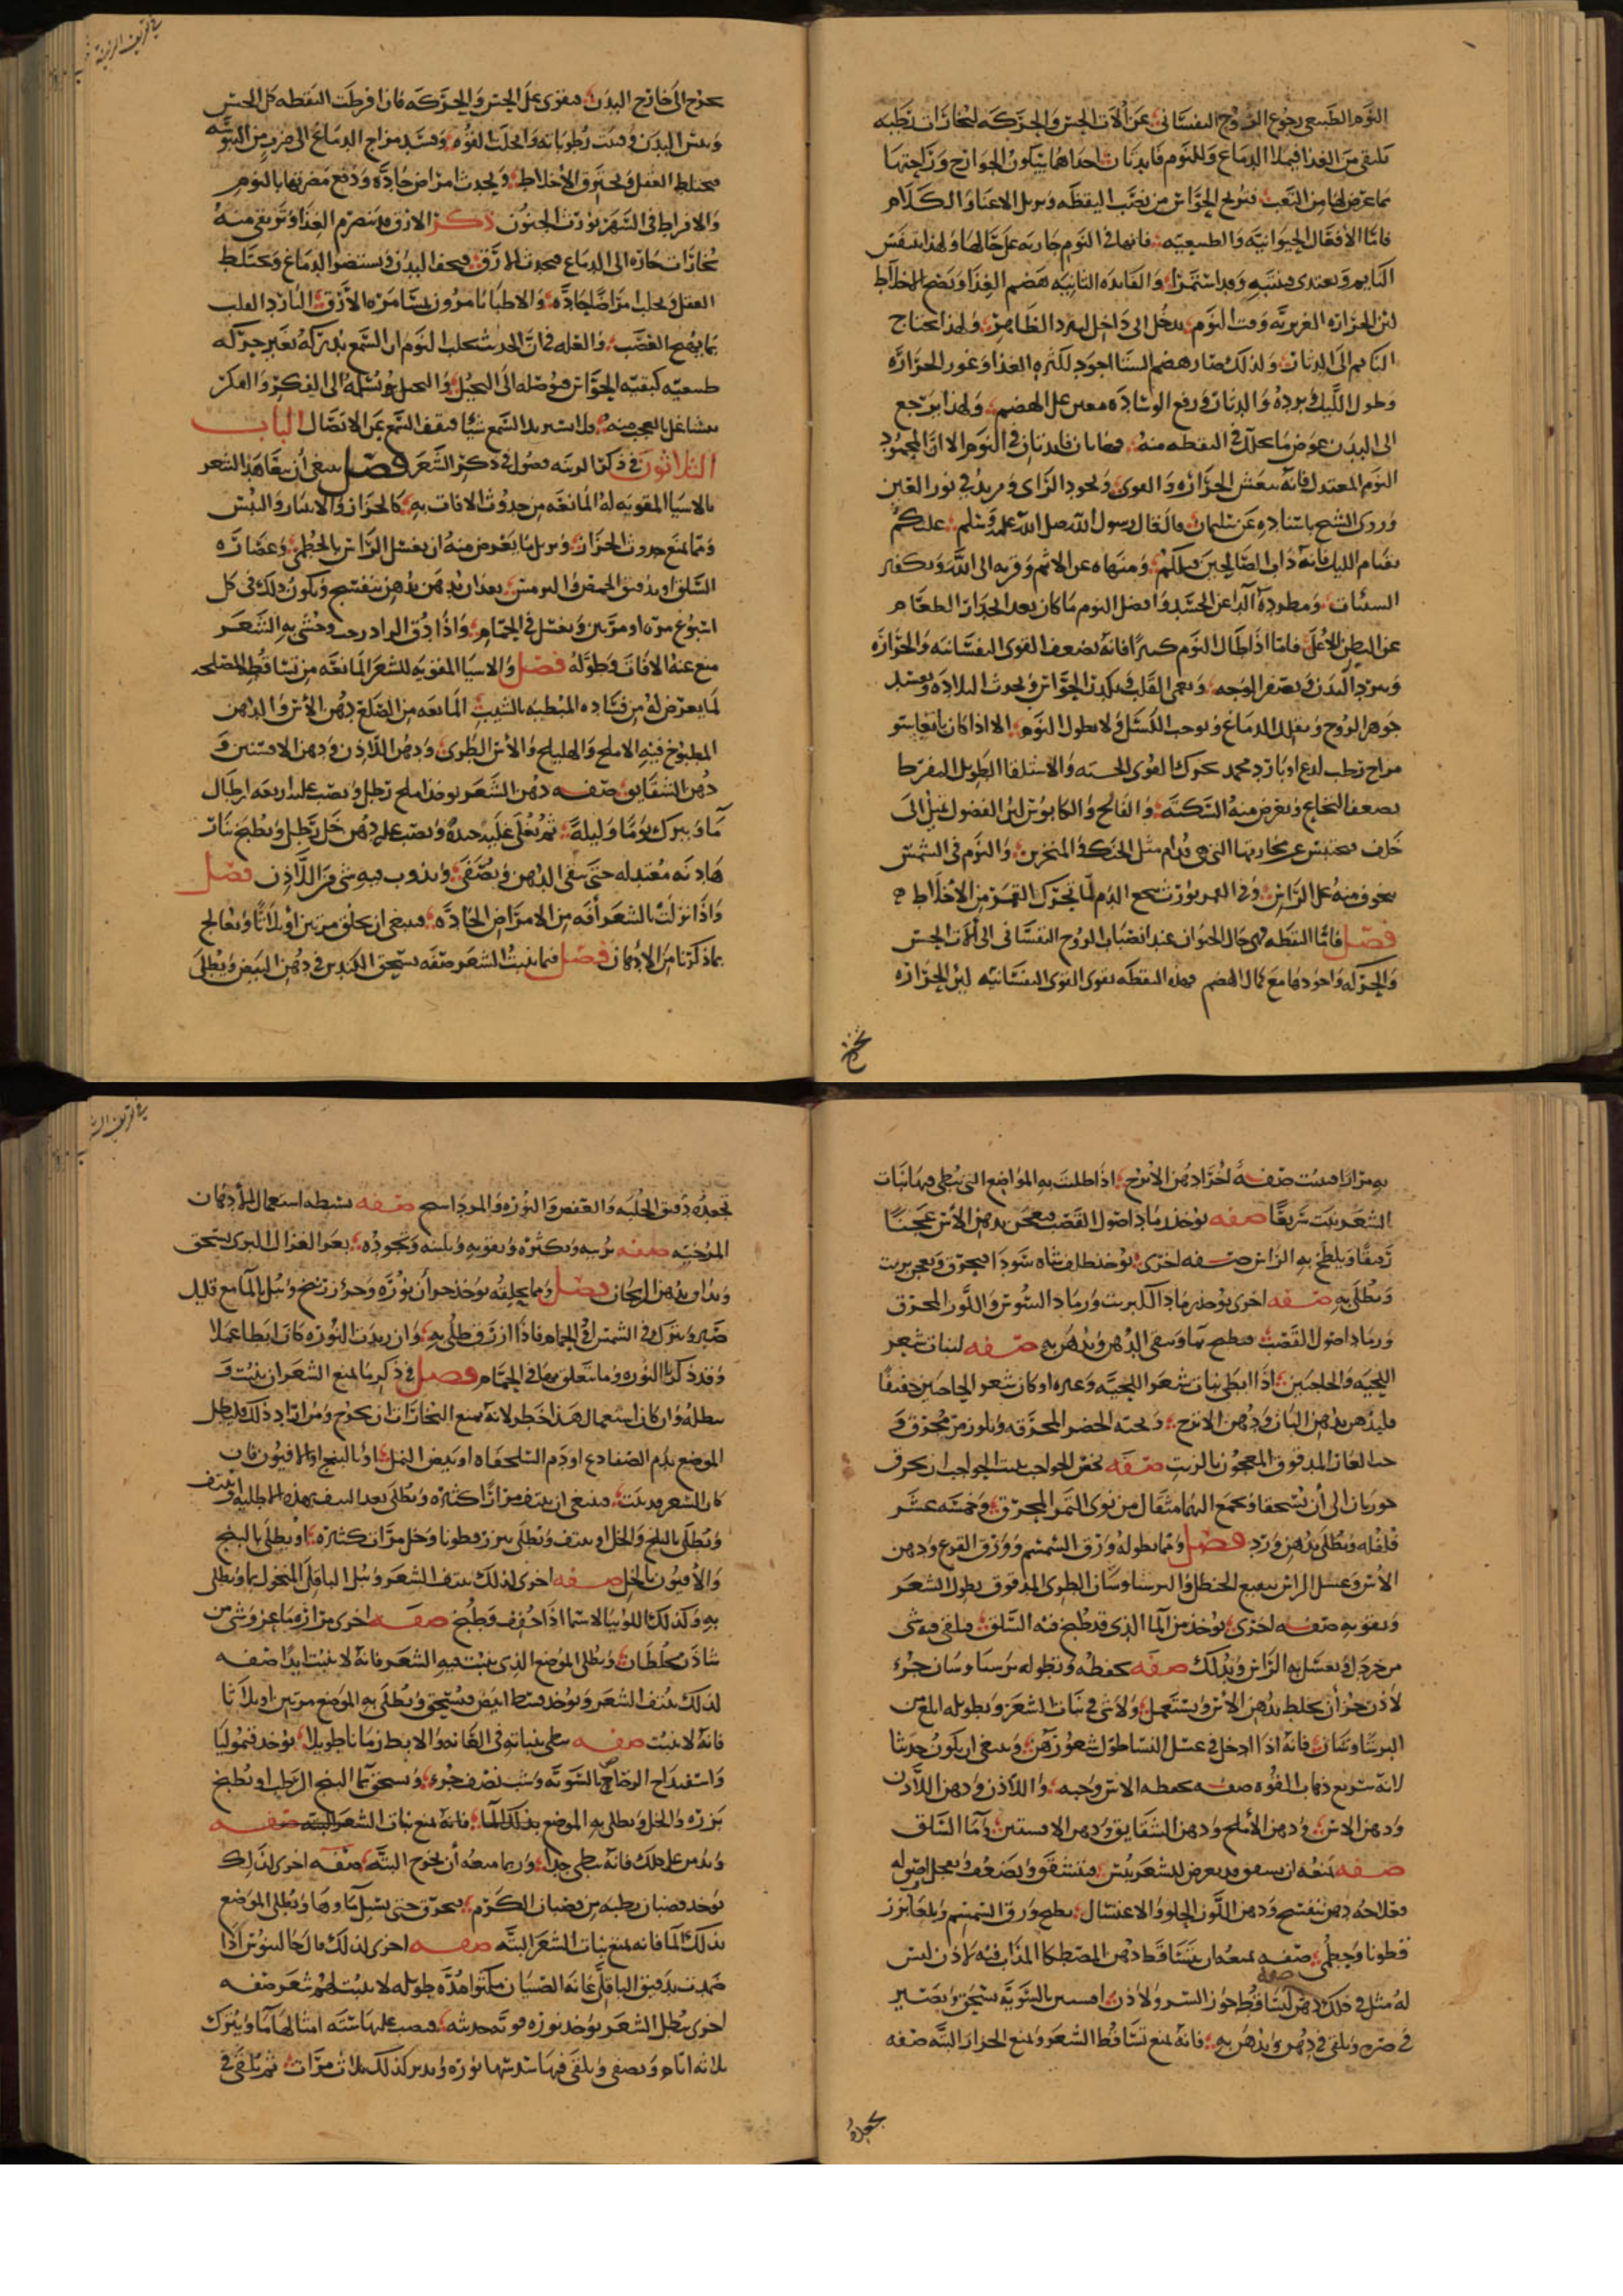 النوم الطبيعي رجوع الروح النفساني عن آلات الحس والحركة لبخارات رطبه
تلتقي من الغذا فيملا الدماغ وللنوم فايدتان احداهما سكون الجوارح وراحتها
مما عرض لها من التعب فتريح الحواس من نصب اليقظه ويزيل الاعيا والكلام
فاما الأفعال الحيوانيه والطبيعيه فانها في النوم جاريه على حالها ولهذا يتنفس
النايم ويغتدي والفايده الثانيه هضم الغذا ونضج الأخلاط
لان الحراره الغريزيه وقت النوم تدخل الى داخل فيبرد الظاهر ولهذا يحتاج
النايم الى الدثار ولذلك صار هضم الشتا اجود لكثره الغذا وغور الحراره
وطول الليل وبرده والدثار ورفع الوساده معين على الهضم ولهذا يرجع
الى البدن عوض ما تحلل في اليقظه منه فهاتان فايدتان في النوم الا ان المحمود
النوم المعتدل فانه ينعش الحراره والقوى ويجود الراى ويزيد في نور العين
وروى الشيخ باسناده عن سلمان قال قال رسول الله صلى الله عليه وسلم عليكم
بقيام الليل فانه داب الصالحين قبلكم ومنهاه عن الاثم وقربه الى الله وتكفير
السيئات ومطرده للدا عن الجسد وافضل النوم ما كان بعد انحدار الطعام
عن البطن الأعلى فاما اذا طال النوم كثيرا فانه يضعف القوى النفسانيه والحراره
ويبرد البدن ويصفر الوجه ويعمي القلب ويكدر الحواس ويحدث البلاده ويفسد
جوهر الروح ويثقل الدماغ ويوجب الكسل ولا يطول النوم الا اذا كان
مزاج رطب تحرك القوى الحسيه والاستلقا الطويل المفرط
يضعف النخاع ويعرض منه السكته والفالج والكابوس لان الفضول تميل الى
خلف فتحتبس عن مجاريها التي هي قدام مثل الحنك والمنخرين والنوم في الشمس
يخوف منه على الراس وفي القمر يورث الدم لما تحرك القمر من الأخلاط
فصل فاما اليقظه فهي حال الحيوان عند انصباب الروح النفساني الى آلات الحس
والحركه واجودها مع كمال الهضم فهذه اليقظه تقوى القوى النفسانيه لان الحراره
تخرج
تخرج الى خارج البدن فيقوى على الحس والحركه فان افرطت اليقظه كل الحس
ويبس البدن وفنيت رطوباته وانحلت القوه وفسد مزاج الدماغ الى ضرب من اليبوسه
فيختلط العقل وتحترق الأخلاط ويحدث امراض حاده ودفع مضرتها بالنوم
والافراط في السهر يورث الجنون ذكر الارق الغذا وترتقي منه
بخارات حاره الى الدماغ فيحدث الارق فيجف البدن ويستضر الدماغ ويختلط
العقل ويجلب امراضا حاده والاطبا يامرون الأرق القلب
بما يهيج الغضب والعله في ان الحديث يجلب النوم ان السمع يدركه بغير حركه
طبيعيه كبقيه الحواس فيوصله الى التخيل والتخيل يوصله الى الفكر والفكر
يتشاغل بالتعجب منه السمع شيا فيقف السمع عن الاتصال الباب
الثلاثون في ذكر الزينه فصول في ذكر الشعر فصل ينبغي ان هذا الشعر
بالاشيا المقويه له المانعه من حدوث الافات به كالحزاز والانتثار واليبس
ومما يمنع حدوث الحزاز ويزيل ما يعرض منه ان يغسل الراس بالخطمي وعصاره
السلق او بدقيق الحمص والترمس بعد ان يدهن بدهن بنفسج ويكون ذلك في كل
اسبوع مره او مرتين ويغسل في الحمام واذا دق وحشى به الشعر
منع عنه الافات وطوله فصل والاشيا المقويه للشعر المانعه من تساقطه المصلحه
لما يعرض له من فساده المبطيه بالشيب المانعه من الصلع دهن الأس والدهن
المطبوخ فيه الاملج والهليلج والأس الطري ودهن اللاذن ودهن الافسنتين و
دهن الشقايق صفه دهن الشعر يوخذ املج رطل ويصب عليه اربعه ارطال
ما ويترك يوما وليلة ثم يغلى غليه جيده ويصب عليه دهن خل رطل ويطبخ بنار
هاديه معتدله حتى يبقى الدهن ويصفى ويذوب فيه شي من اللاذن فصل
واذا نزلت بالشعر أفه من الامراض الحاده فينبغي ان يحلق مرتين او ثلاثا ويعالج
بما ذكرنا من الأدهان فصل فيما ينبت الشعر صفه يسحق الكندس في دهن البيض ويطلى
به مرارا فينبت صفه أخرى دهن الأترج اذا طليت به المواضع التي يبطي فيها نبات
الشعر نبت سريعا صفه يوخذ رماد اصول القصب فيعجن بدهن الأس عجنا
رقيقا ويلطخ به الراس صفه اخرى يوخذ ظلف شاه سودا فيحرق ويعجن بزيت
ويطلى به صفه اخرى يوخذ رماد الكبريت ورماد السوس واللوز المحرق
ورماد اصول القصب فيطبخ بما ويبقى الدهن ويدهن به صفه لنبات شعر
اللحيه والحاجبين اذا ابطى نبات شعر اللحيه وغيره او كان شعر الحاجبين خفيفا
فليدهن بدهن البان ودهن الاترج المحرقه ولوز مر محرق و
حب الغار المدقوق المعجون بالزيت صفه تخص الحواجب تنبت الحواجب ان يحرق
جوزتان الى أن تسحقا ويجمع اليهما مثقال من نوى التمر المحرق وخمسه عشر
فلفله ويطلى بدهن ورد فصل ومما يطوله ورق السمسم وورق القرع ودهن
الأس وغسل الراس بنقيع الحنظل الطري المدقوق يطول الشعر
ويقويه صفه اخرى يوخذ من الما الذي قد طبخ فيه السلق فيلقى فيه شي
من خردل ويغسل به الراس ويدلك صفه تحفظه وتطوله برسياوسان جزء
لاذن جزأن يخلط بدهن الأس ويستعمل ولا شي في نبات الشعر وتطويله ابلغ من
البرسياوسان فانه اذا ادخل في غسل النسا طول شعورهن وينبغي ان يكون حديثا
لانه سريع ذهاب القوه صفه تحفظه الاس وحبه واللاذن ودهن اللاذن
ودهن الاس ودهن الأملج ودهن الشقايق ودهن الافسنتين وما السلق
صفه تمنعه ان يتشقق قد يعرض للشعر يبس فيتشقق ويضعف
فعلاجه دهن بنفسج ودهن اللوز الحلو والاغتسال بطبيخ ورق السمسم ولعاب بزر
قطونا وخطمي صفه تمنعه ان يتساقط دهن المصطكا المذاب فيه لاذن ليس
له مثل في ذلك صفه دهن لتساقطه جوز السرو ولاذن افسنتين بالسويه يسحق ويصير
في صره ويلقى في دهن ويدهن به فانه يمنع تساقط الشعر ويمنع الحزاز البته صفه
تجعده
تجعده دقيق الحلبه والعفص والنوره والمرداسنج صفه تبسطه استعمال الأدهان
المرخيه صفه تربيه وتكثره وتقويه وتلينه وتجوده بعر الغزال البري يسحق
ويداف بدهن الريحان فصل ومما يحلقه يوخذ جزأن نوره وجزء زرنيخ ويبل بالما مع قليل
صبر ويترك في الشمس او في الحمام فاذا ازرق طلي به وان زيدت النوره كان ابطا عملا
وقد ذكرنا النوره وما يتعلق بها في الحمام فصل في ذكر ما يمنع الشعر ان ينبت و
يبطله وان كان استعمال هذا خطر لانه يمنع البخارات ان تخرج ومن اراد ذلك فليطل
الموضع بدم الضفادع او دم السلحفاه او ببيض النمل او بالبنج او الافيون فان
كان الشعر قد نبت فينبغي ان ينتف مرارا كثيره ويطلى بعد النتف بهذه الاطليه او ينتف
ويطلى بالبنج والخل او ينتف ويطلى ببزر قطونا وخل مرات كثيره او يطلى بالبنج
والأفيون بالخل صفه اخرى لذلك ينتف الشعر ويبل الباقلى المنخول بما ويطلى
به وكذلك اللوبيا لاسيما اذا جفف وطبخ صفه اخرى مراره ماعز وشي من
شاذر يخلطان ويطلى الموضع الذي ينبت فيه الشعر فانه لا ينبت ابدا صفه
لذلك ينتف الشعر ويوخذ ابيض فيسحق ويطلى به الموضع مرتين او ثلاثا
فانه لا ينبت صفه تبطي بنباته في العانه والابط زمانا طويلا يوخذ قيموليا
واسفيداج الرصاص بالسويه وشب نصف جزء ويسحق بما البنج الرطب او يطبخ
بزره والخل ويطلى به الموضع بذلك الما فانه يمنع نبات الشعر البته صفه
ويدمن على ذلك فانه يبطي جدا وربما منعه أن يخرج البته صفه اخرى لذلك
يوخذ قضبان رطبه من قضبان الكرم فيحرق حتى يسيل ماوها ويطلى الموضع
بذلك الما فانه يمنع نبات الشعر البته صفه اخرى لذلك قال جالينوس اذا
ضمدت بدقيق الباقلى عانه الصبيان مكثوا مده طويله لا ينبت لهم شعر صفه
اخرى تبطل الشعر يوخذ نوره قويه حديثه فيصب عليها سته امثالها ما ويترك
ثلاثه ايام ويصفى ويلقى فيها سدسها نوره ويدبر كذلك ثلاث مرات ثم يلقى في